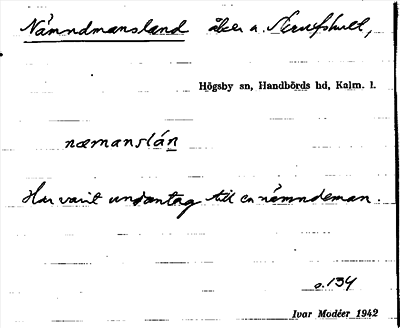 Nämndmansland åker a. Skrufshult,
Högsby sn, Handbörds hd, Kalm. l.
næmanslán
Har varit undantag till en nämndeman.
s. 134
Ivar Modéer 1942